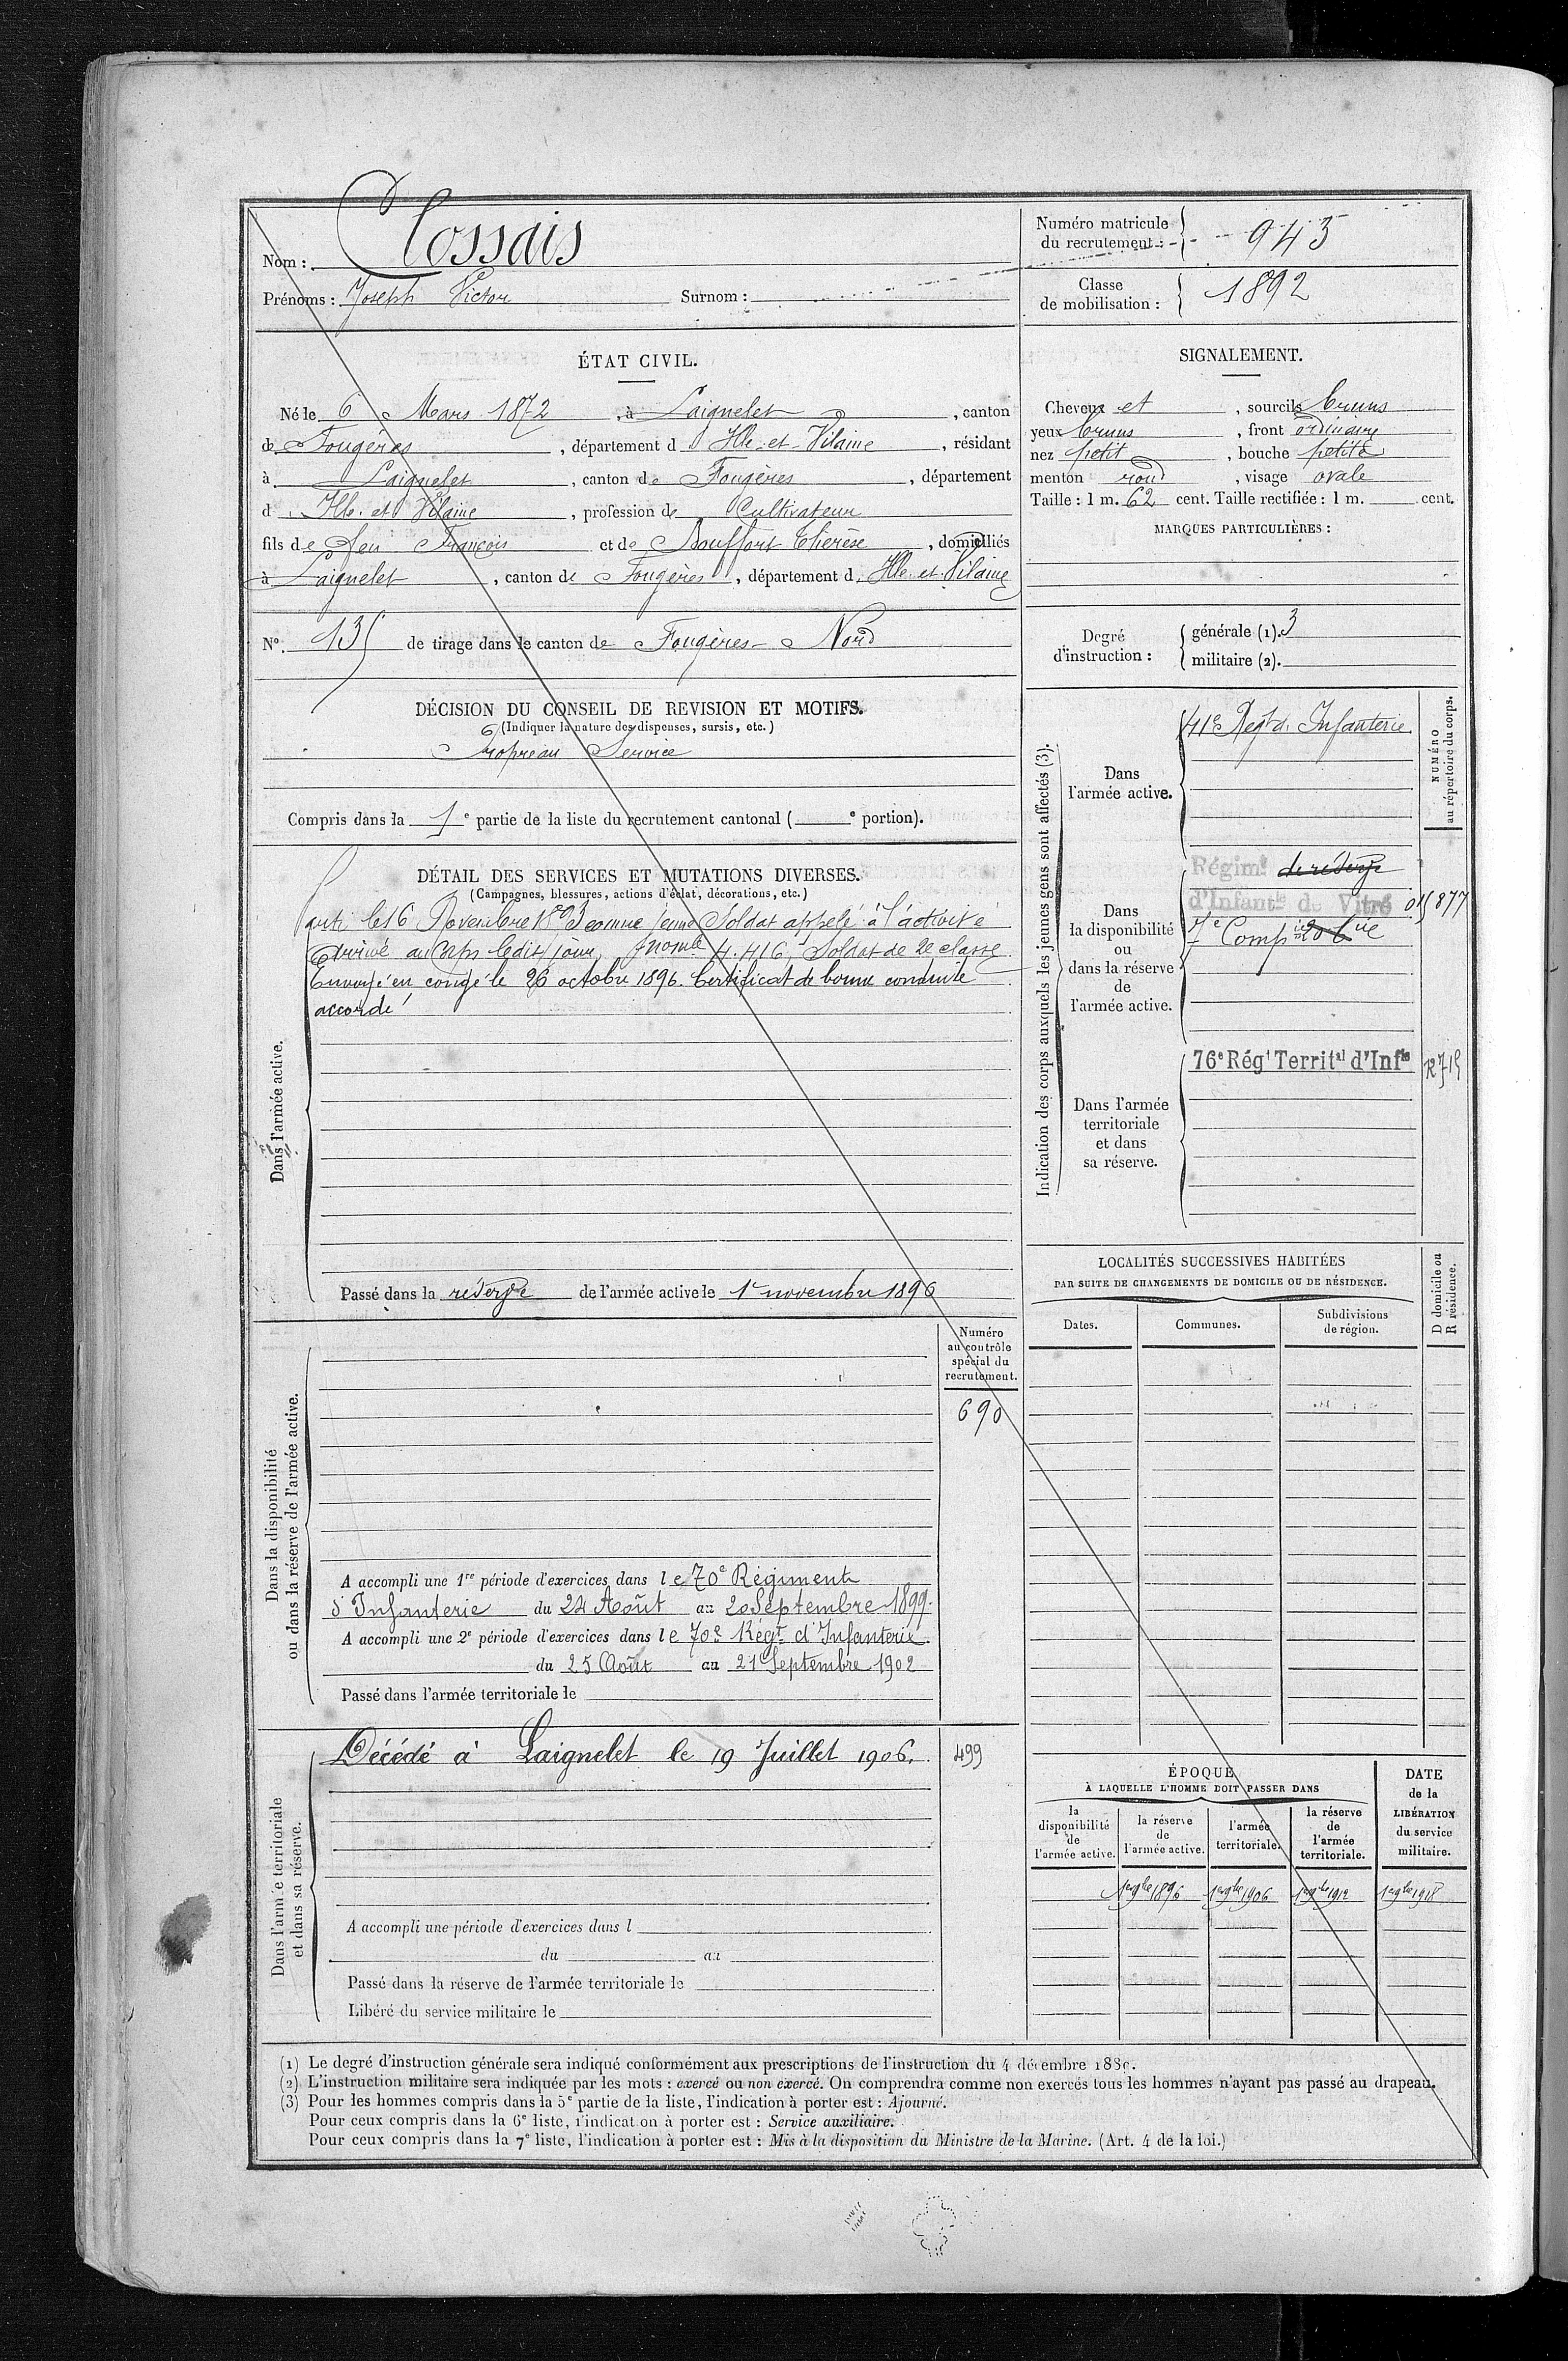 Nom : Clossais
Prénoms : Joseph Victor Surnom :
Numéro matricule du recrutement : 943
Classe de mobilisation : 1892
ÉTAT CIVIL.
Né le 6 Mars 1872, à Laignelet, canton
de Fougères, département d Ille-et-Vilaine, résidant
à Laignelet, canton de Fougères, département
d Ille et Vilaine, profession de Cultivateur
fils de feu François et de Thérèse, domiciliés
à Laignelet, canton de Fougères, département d Ille et Vilaine
N° 135 de tirage dans le canton de Fougères-Nord
DÉCISION DU CONSEIL DE REVISION ET MOTIFS.
(Indiquer la nature des dispenses, sursis, etc.)
Propre au Service
Compris dans la 1e partie de la liste du recrutement cantonal ( e portion).
DÉTAIL DES SERVICES ET MUTATIONS DIVERSES.
(Campagnes, blessures, actions d'éclat, décorations, etc.)
Dans l'armée active.
Parti le 16 Novembre comme jeune Soldat appelé à l'activité
Arrivé au Corps ledit jour, 4.416, Soldat de 2e classe
Envoyé en congé le 26 octobre 1896. Certificat de bonne conduite
accordé
Passé dans la réserve de l'armée active le 1er novembre 1896
Dans la disponibilité
ou dans la réserve de l'armée active.
Numéro
au contrôle
spécial du
recrutement.
690
A accompli une 1re période d'exercices dans le 70e Régiment
d'Infanterie du 24 Août au 20 Septembre 1899.
A accompli une 2e période d'exercices dans le 70e Régt d'Infanterie.
du 25 Août au 21 Septembre 1902
Passé dans l'armée territoriale le
Dans l'armée territoriale
et dans sa réserve.
Décédé à Laignelet le 19 Juillet 1906. 499
A accompli une période d'exercices dans l
du au
Passé dans la réserve de l'armée territoriale le
Libéré du service militaire le
SIGNALEMENT.
Cheveux et, sourcils bruns
yeux bruns, front ordinaire
nez petit, bouche petite
menton rond, visage ovale
Taille : 1 m. 62 cent. Taille rectifiée : 1 m. cent.
MARQUES PARTICULIÈRES :
Degré
d'instruction :
générale (1). 3
militaire (2).
Indication des corps auxquels les jeunes gens sont affectés (3).
NUMÉRO
au répertoire du corps.
Dans
l'armée active.
41e Régt d'Infanterie
Dans
la disponibilité
ou
dans la réserve
de
l'armée active.
Régimt de réserve
d'Infantie de Vitré 015877
7e Compie
Dans l'armée
territoriale
et dans
sa réserve.
76e Régt Territal d'Infie R715
LOCALITÉS SUCCESSIVES HABITÉES
PAR SUITE DE CHANGEMENTS DE DOMICILE OU DE RÉSIDENCE.
D domicile ou
R résidence.
Dates. Communes. Subdivisions
de région.
ÉPOQUE
À LAQUELLE L'HOMME DOIT PASSER DANS
la
disponibilité
de
l'armée active.
la réserve
de
l'armée active.
l'armée
territoriale.
la réserve
de
l'armée
territoriale.
DATE
de la
LIBÉRATION
du service
militaire.
1er 9bre 1896 1er 9bre 1906 1er 9bre 1912 1er 9bre 1918
(1) Le degré d'instruction générale sera indiqué conformément aux prescriptions de l'instruction du 4 décembre 1889.
(2) L'instruction militaire sera indiquée par les mots : exercé ou non exercé. On comprendra comme non exercés tous les hommes n'ayant pas passé au drapeau.
(3) Pour les hommes compris dans la 5e partie de la liste, l'indication à porter est : Ajourné.
Pour ceux compris dans la 6e liste, l'indication à porter est : Service auxiliaire.
Pour ceux compris dans la 7e liste, l'indication à porter est : Mis à la disposition du Ministre de la Marine. (Art. 4 de la loi.)